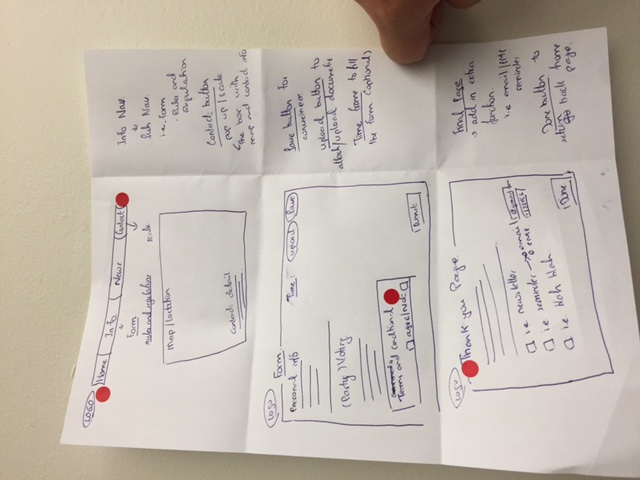 LOGO
Home
Info
News
Contact
Form
rules and regulation
Map/location
Contact detail
Info Nav
Sub Nav
i.e. Form
• Rules and
Regulation
Contact button
pop up / scale
the box with
map and contact info
LOGO
Form
Personal info
Time:
upload
Save
(Party) Voting
Terms and conditional
agree/not
Submit
Save button for
upload button to
attach/upload documents
Time frame to fill
the form (optional)
LOGO
Thank you Page
i.e newsletter
i.e reminder → email
SMS
i.e blah blah
Done
Final Page
→ add in extra
function
i.e email/SMS
reminder
Done button to
return back home
page.